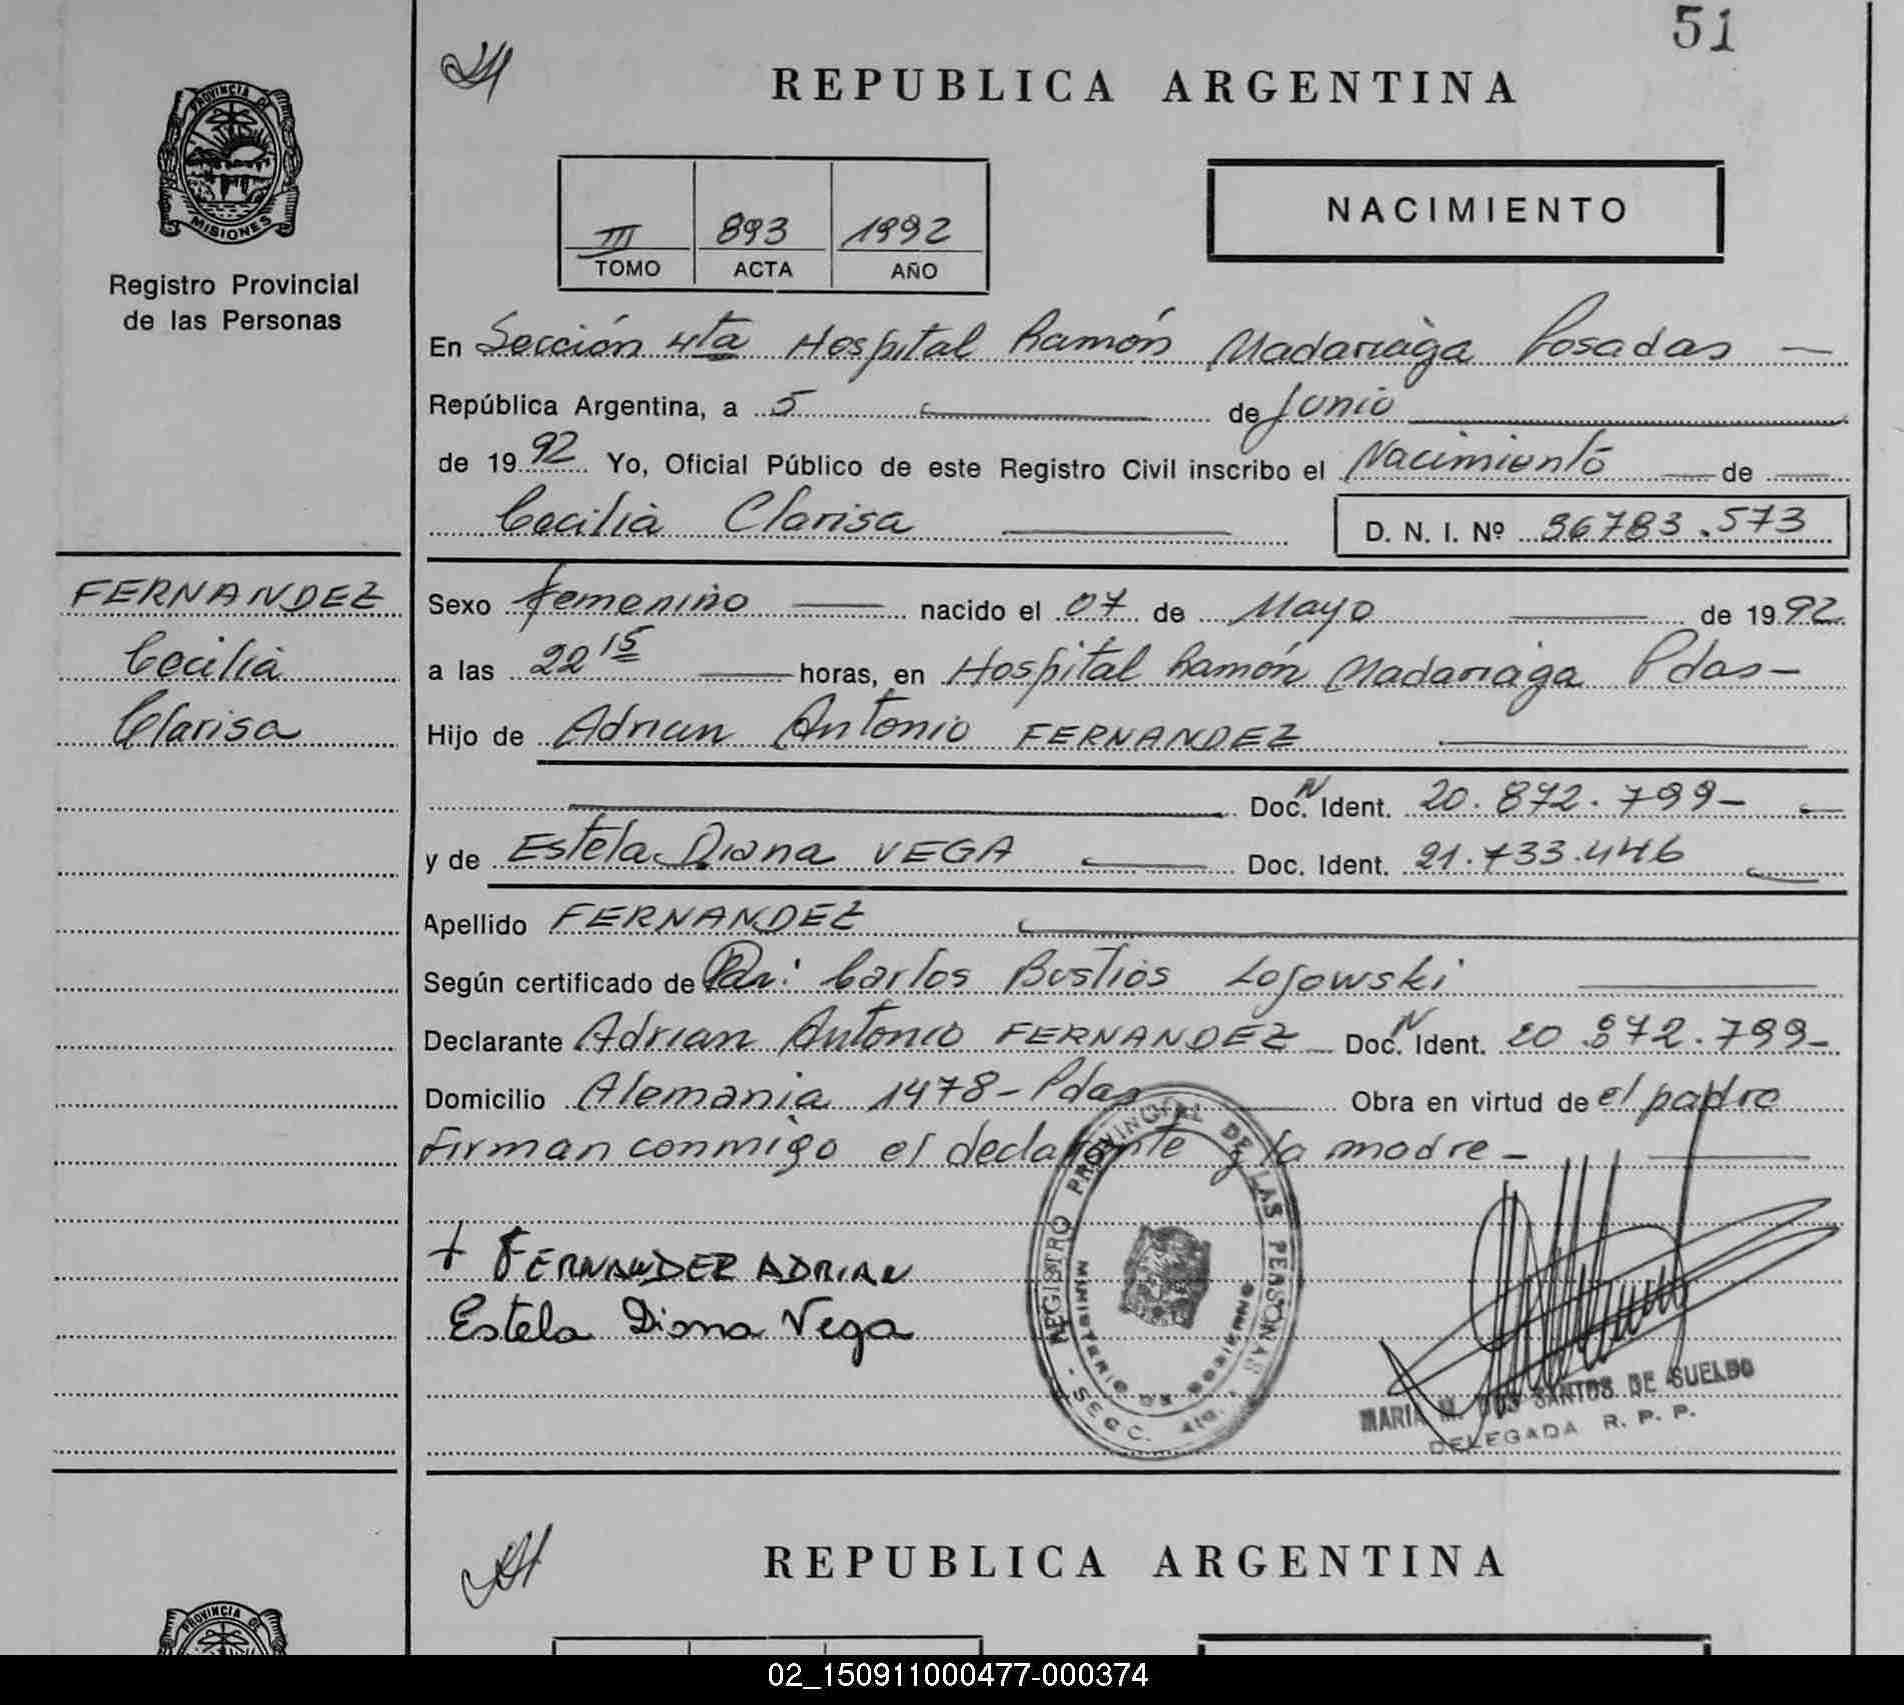 51
REPUBLICA ARGENTINA
PROVINCIA DE
MISIONES
Registro Provincial
de las Personas
NACIMIENTO
III 893 1992
TOMO ACTA AÑO
En Sección 4ta Hospital Ramón Madariaga Posadas —
República Argentina, a 5 — de Junio
de 1992 Yo, Oficial Público de este Registro Civil inscribo el Nacimiento — de —
Cecilia Clarisa —
D. N. I. Nº 36783.573
FERNANDEZ
Cecilia
Clarisa
Sexo femenino — nacido el 07 de Mayo — de 1992
a las 22 15 — horas, en Hospital Ramón Madariaga Pdas-
Hijo de Adrian Antonio FERNANDEZ —
— Doc. N Ident. 20.872.799-
y de Estela Diana VEGA — Doc. Ident. 21.733.446
Apellido FERNANDEZ —
Según certificado de Dr: Carlos Bustios Lojowski —
Declarante Adrian Antonio FERNANDEZ — Doc. N Ident. 20.872.799-
Domicilio Alemania 1478-Pdas — Obra en virtud de el padre
Firman conmigo el declarante y la madre - —
+ FERNANDEZ ADRIAN
Estela Diana Vega
REGISTRO PROVINCIAL DE LAS PERSONAS
MINISTERIO DE GOBIERNO
MARIA M. DOS SANTOS DE SUELDO
DELEGADA R. P. P.
REPUBLICA ARGENTINA
PROVINCIA DE
02_150911000477-000374